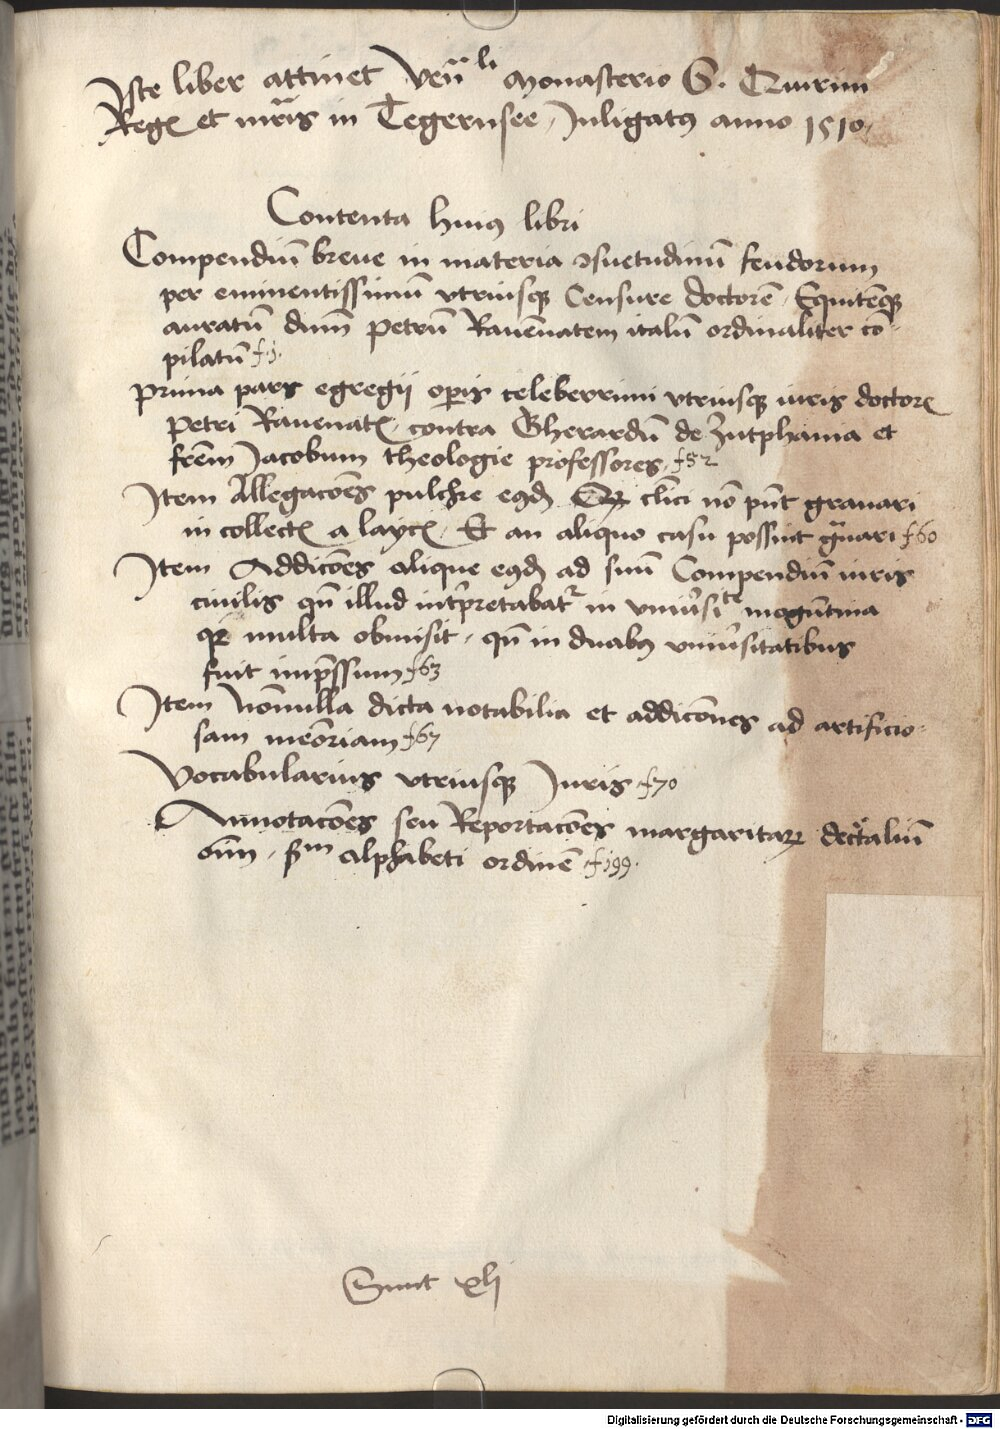 Iste liber attinet Ven̄li Monasterio S. Quirini
Regꝭ et mr̄is in Tegernsee, Inligatꝰ anno 1510.
Contenta huiꝰ libri
Compendiū breue in materia ↄsuetudinū feudorum
per eminentissimū vtriusqꝫ Censure doctorē, Equitēqꝫ
auratū dn̄m Petrū Rauēnatem italū ordinaliter cō-
pilatū f 1.
Prima pars egregij oꝑis celeberrimi vtriusqꝫ iuris doctorꝭ
Petri Rauenatꝭ, contra Gherardū de Zutphania et
fr̄em Jacobum theologie professores, f 52
Item Allegacōes pulchre eꝰdē Qꝫ cl̄ici nō pn̄t grauari
in collectꝭ a laycꝭ, Et an aliquo casu possint gͣuari f 60
Item Addicōes alique eꝰdē ad suū Compendiū iuris
ciuilis qn̄ illud int̄pretabatʳ in vniūsitᵉ magūtina
qꝛ multa obmisit, qn̄ in duabꝰ vniūsitatibus
fuit imp̄ssum f 63
Item Nōnulla dicta notabilia et addicōnes ad artificio-
sam meōriam f 67
Vocabularius vtriusqꝫ Juris f 70
Annotacōes seu Reportacōes margaritaꝝ dec̄taliū
om̄, s̄m alphabeti ordinē f 199.
Sunt xlj
Digitalisierung gefördert durch die Deutsche Forschungsgemeinschaft - DFG